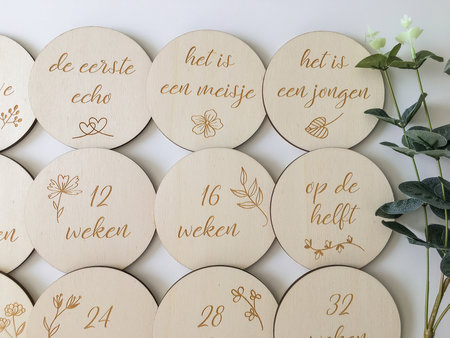 de eerste
echo
het is
een meisje
het is
een jongen
12
weken
16
weken
op de
helft
24
28
32
weken